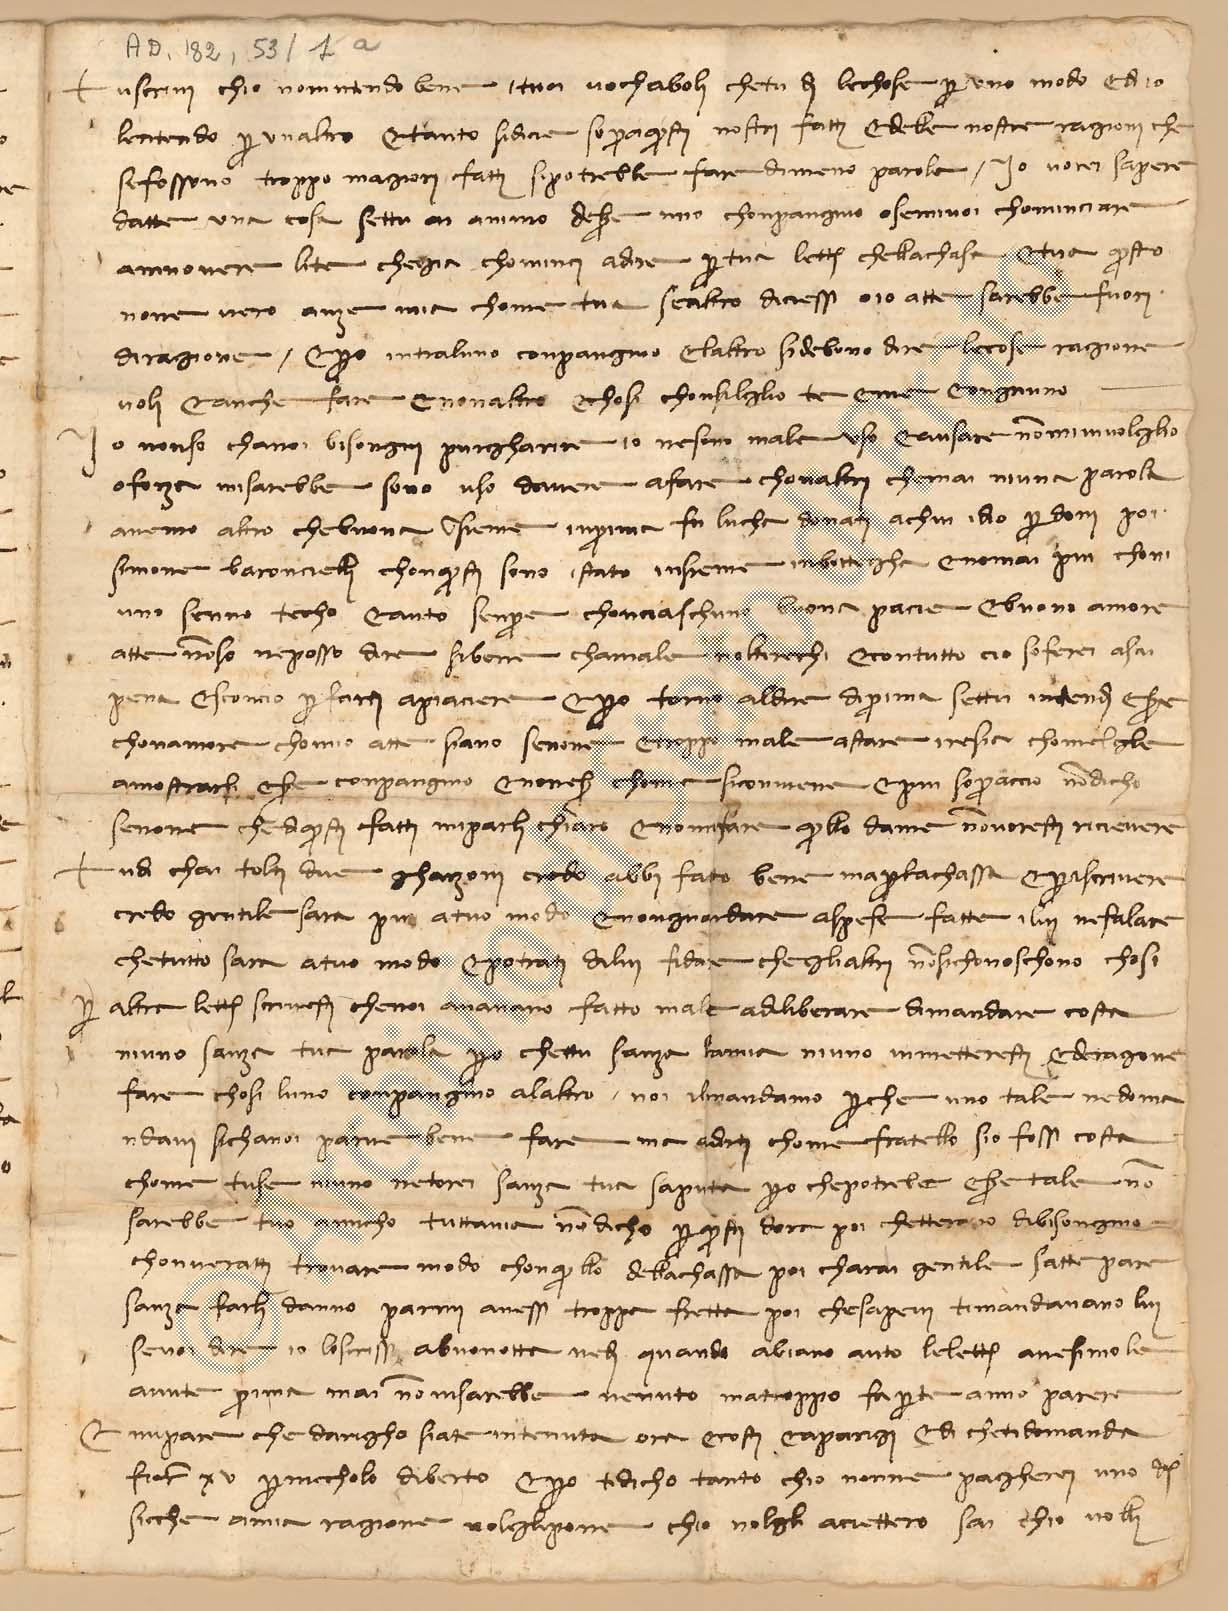 AD. 182, 53/ 1 a
tu scrivi chio nonnintendo bene i tuoi vochaboli chetu di lechose p uno modo ed io
lentendo p unaltro e tanto sidicie sopra questi nostri fatti e dele nostre ragioni che
sefossono troppo magiori fatti sipotrebbe fare dimeno parole / Io vorei sapere
datte una cosa settu ai animo desere mio chonpangnio o senmivoi chominciare
amuovere lite chegia chominci a dire p tua lettera chellachasa e tua questo
none vero anze mia chome tua sealtro diciessi o io atte sarebbe fuori
diragione / e pero intraluno conpangnio e laltro sidebono dire lecose ragione
voli e anche fare e nonaltro e chosi chonsilglio te e me e ongniuno
Io nonso chanoi bisongni purghare io nesono male uso e ausare nonminvolglio
o forza misarebbe sono uso davere afare chonaltri chemai niuna parola
avemo altro chebuona insieme inprima fu lucha donati achui idio perdoni poi
simone baronciegli chonquesti sono istato insieme inbotteghe e nomai piu choni
uno senno techo e auto senpre chonciaschuno buona pacie e buono amore
atte nonso neposso dire sibene chamale noltirechi e contutto cio soferei asai
pena e sconcio p farti apiaciere e pero torno aldire diprima settu intendi esere
chonamore chomio atte siano senone e troppo male astare
amostrarsi esere conpangnio e nonesser chome siconviene e piu sopraccio nodicho
senone chediquesti fatti miparli chiaro e nonmifare quello dame nonvoresti ricievere
tu di chai tolti due gharzoni credo abbi fato bene map lachassa e p iscrivere
credo gentile sara piu atuo modo e nonguardare aspese fatte ilui nefalare
chetutto sara atuo modo e potrati dilui fidare chegli altri nonsichonoschono chosi
p altra lettera scrivesti chenoi avavamo fatto male adiliberare dimandare costa
niuno sanza tua parola pero chettu sanza lamia niuno vimetteresti ed e ragione
fare chosi luno conpangnio alaltro / noi ilmandamo perche uno tale nedoma
ndavi sichanoi parve bene fare ma aditi chomefratello sio fossi costa
chome tuse niuno netorei sanza tua saputa pero chepotrebe esere tale non
sarebbe tuo amicho tuttavia nondicho perquesti dora poi chettera dibisongnio
chonveratti trovare modo chonquello dellachassa poi charai gentile satte pare
sanza farli danno parmi avessi troppa fretta poi chesapevi timandavano lui
senoi dire io loscrissi abuonotta vedi quando abiano auto lelettere avesimole
avute prima mai nonvisarebbe venuto matroppo fa p te amio parere
E mipare che darigho siate intenuta ora e costi e aparigi e di chetidomanda
fior. xv p michole diberto e pero tidicho tanto chio nonne pagherei uno d.
sicche amia ragione nolglipone chio nolgli aciettero sai chio nolli